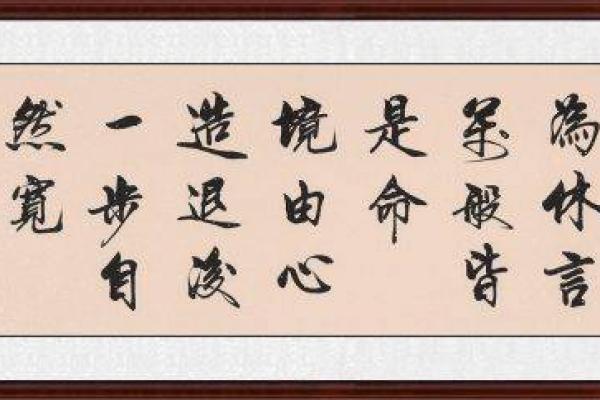 為休言
萬般皆
是命
境由心
造退後
一步自
然寬